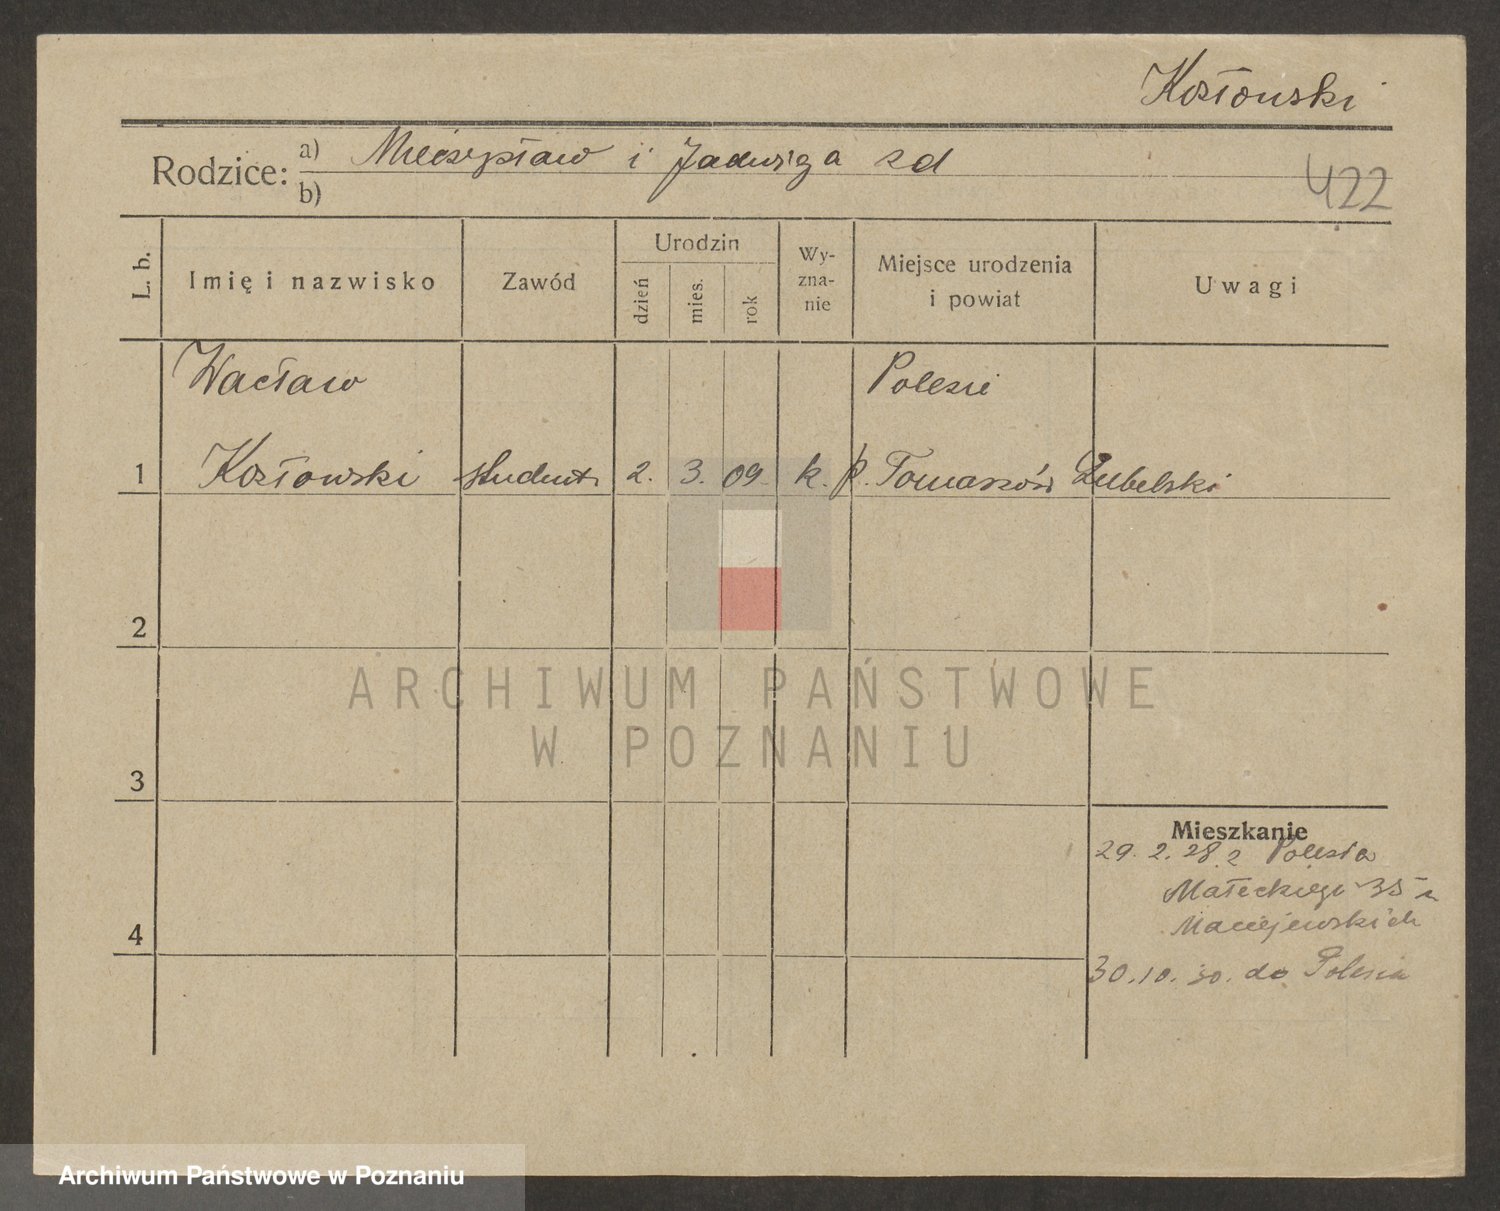 Kozłowski
Rodzice:
a) Mieczysław i Jadwiga zd
b)
422
L. b.
Imię i nazwisko
Zawód
Urodzin
dzień
mies.
rok
Wy-
zna-
nie
Miejsce urodzenia
i powiat
Uwagi
Wacław
1 Kozłowski student 2. 3. 09. k. p. Tomaszów Lubelski
2
3
4
Mieszkanie
29. 2. 28 z
Małeckiego 35
Maciejewskich
30. 10. 30. do
ARCHIWUM PAŃSTWOWE
W POZNANIU
Archiwum Państwowe w Poznaniu